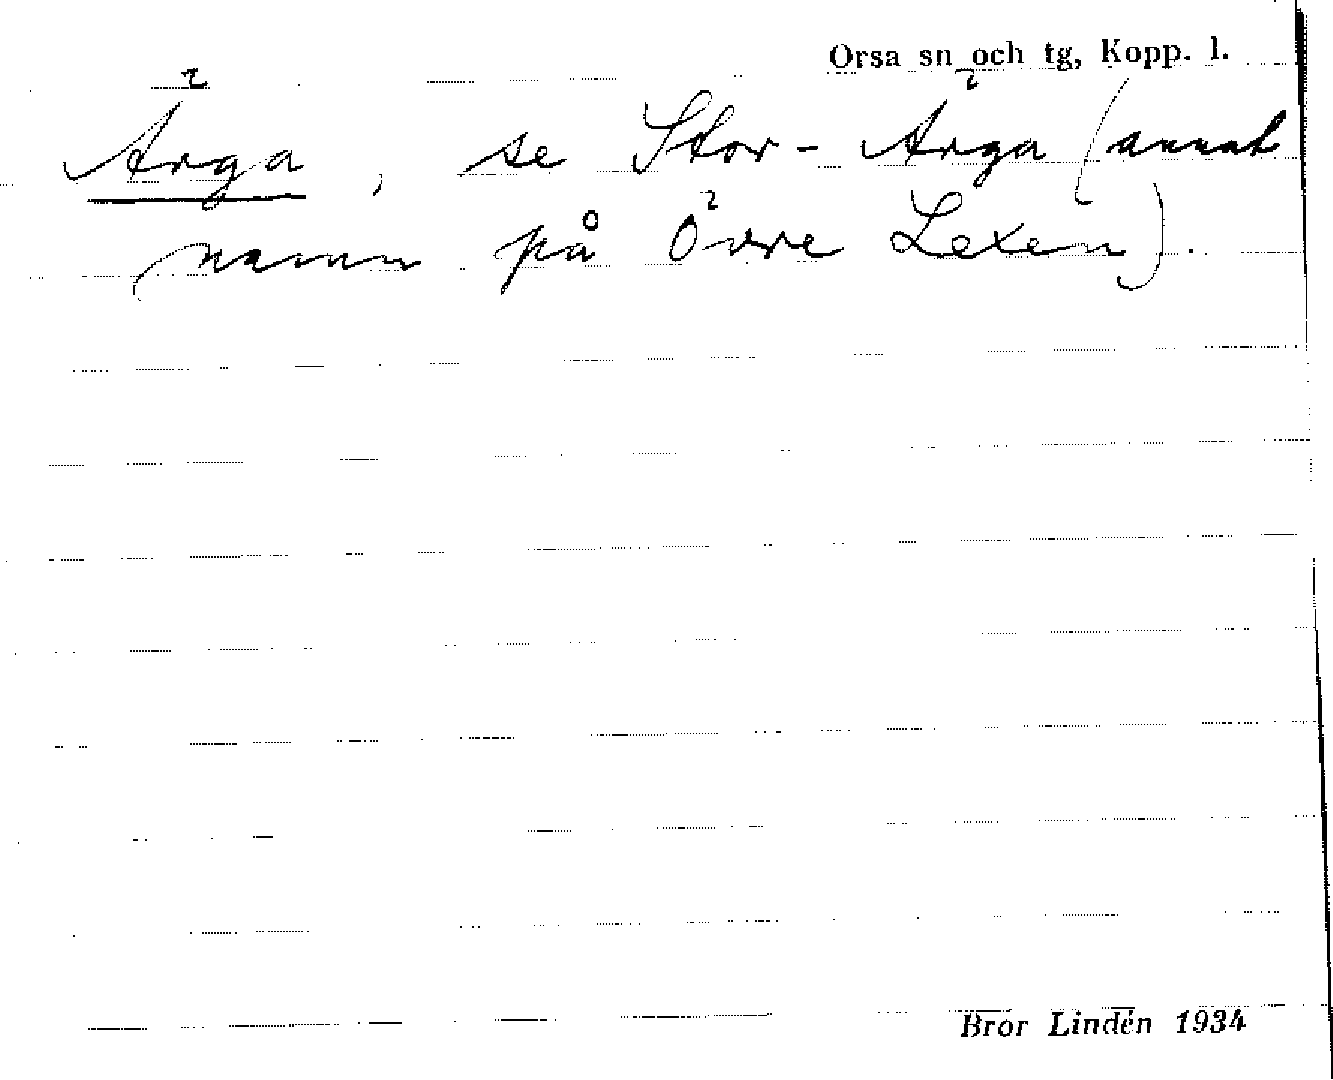 Orsa sn och tg, Kopp. l.
Ärga, se Stor-Ärga (annat
namn på Övre Lexen).
Bror Lindén 1934